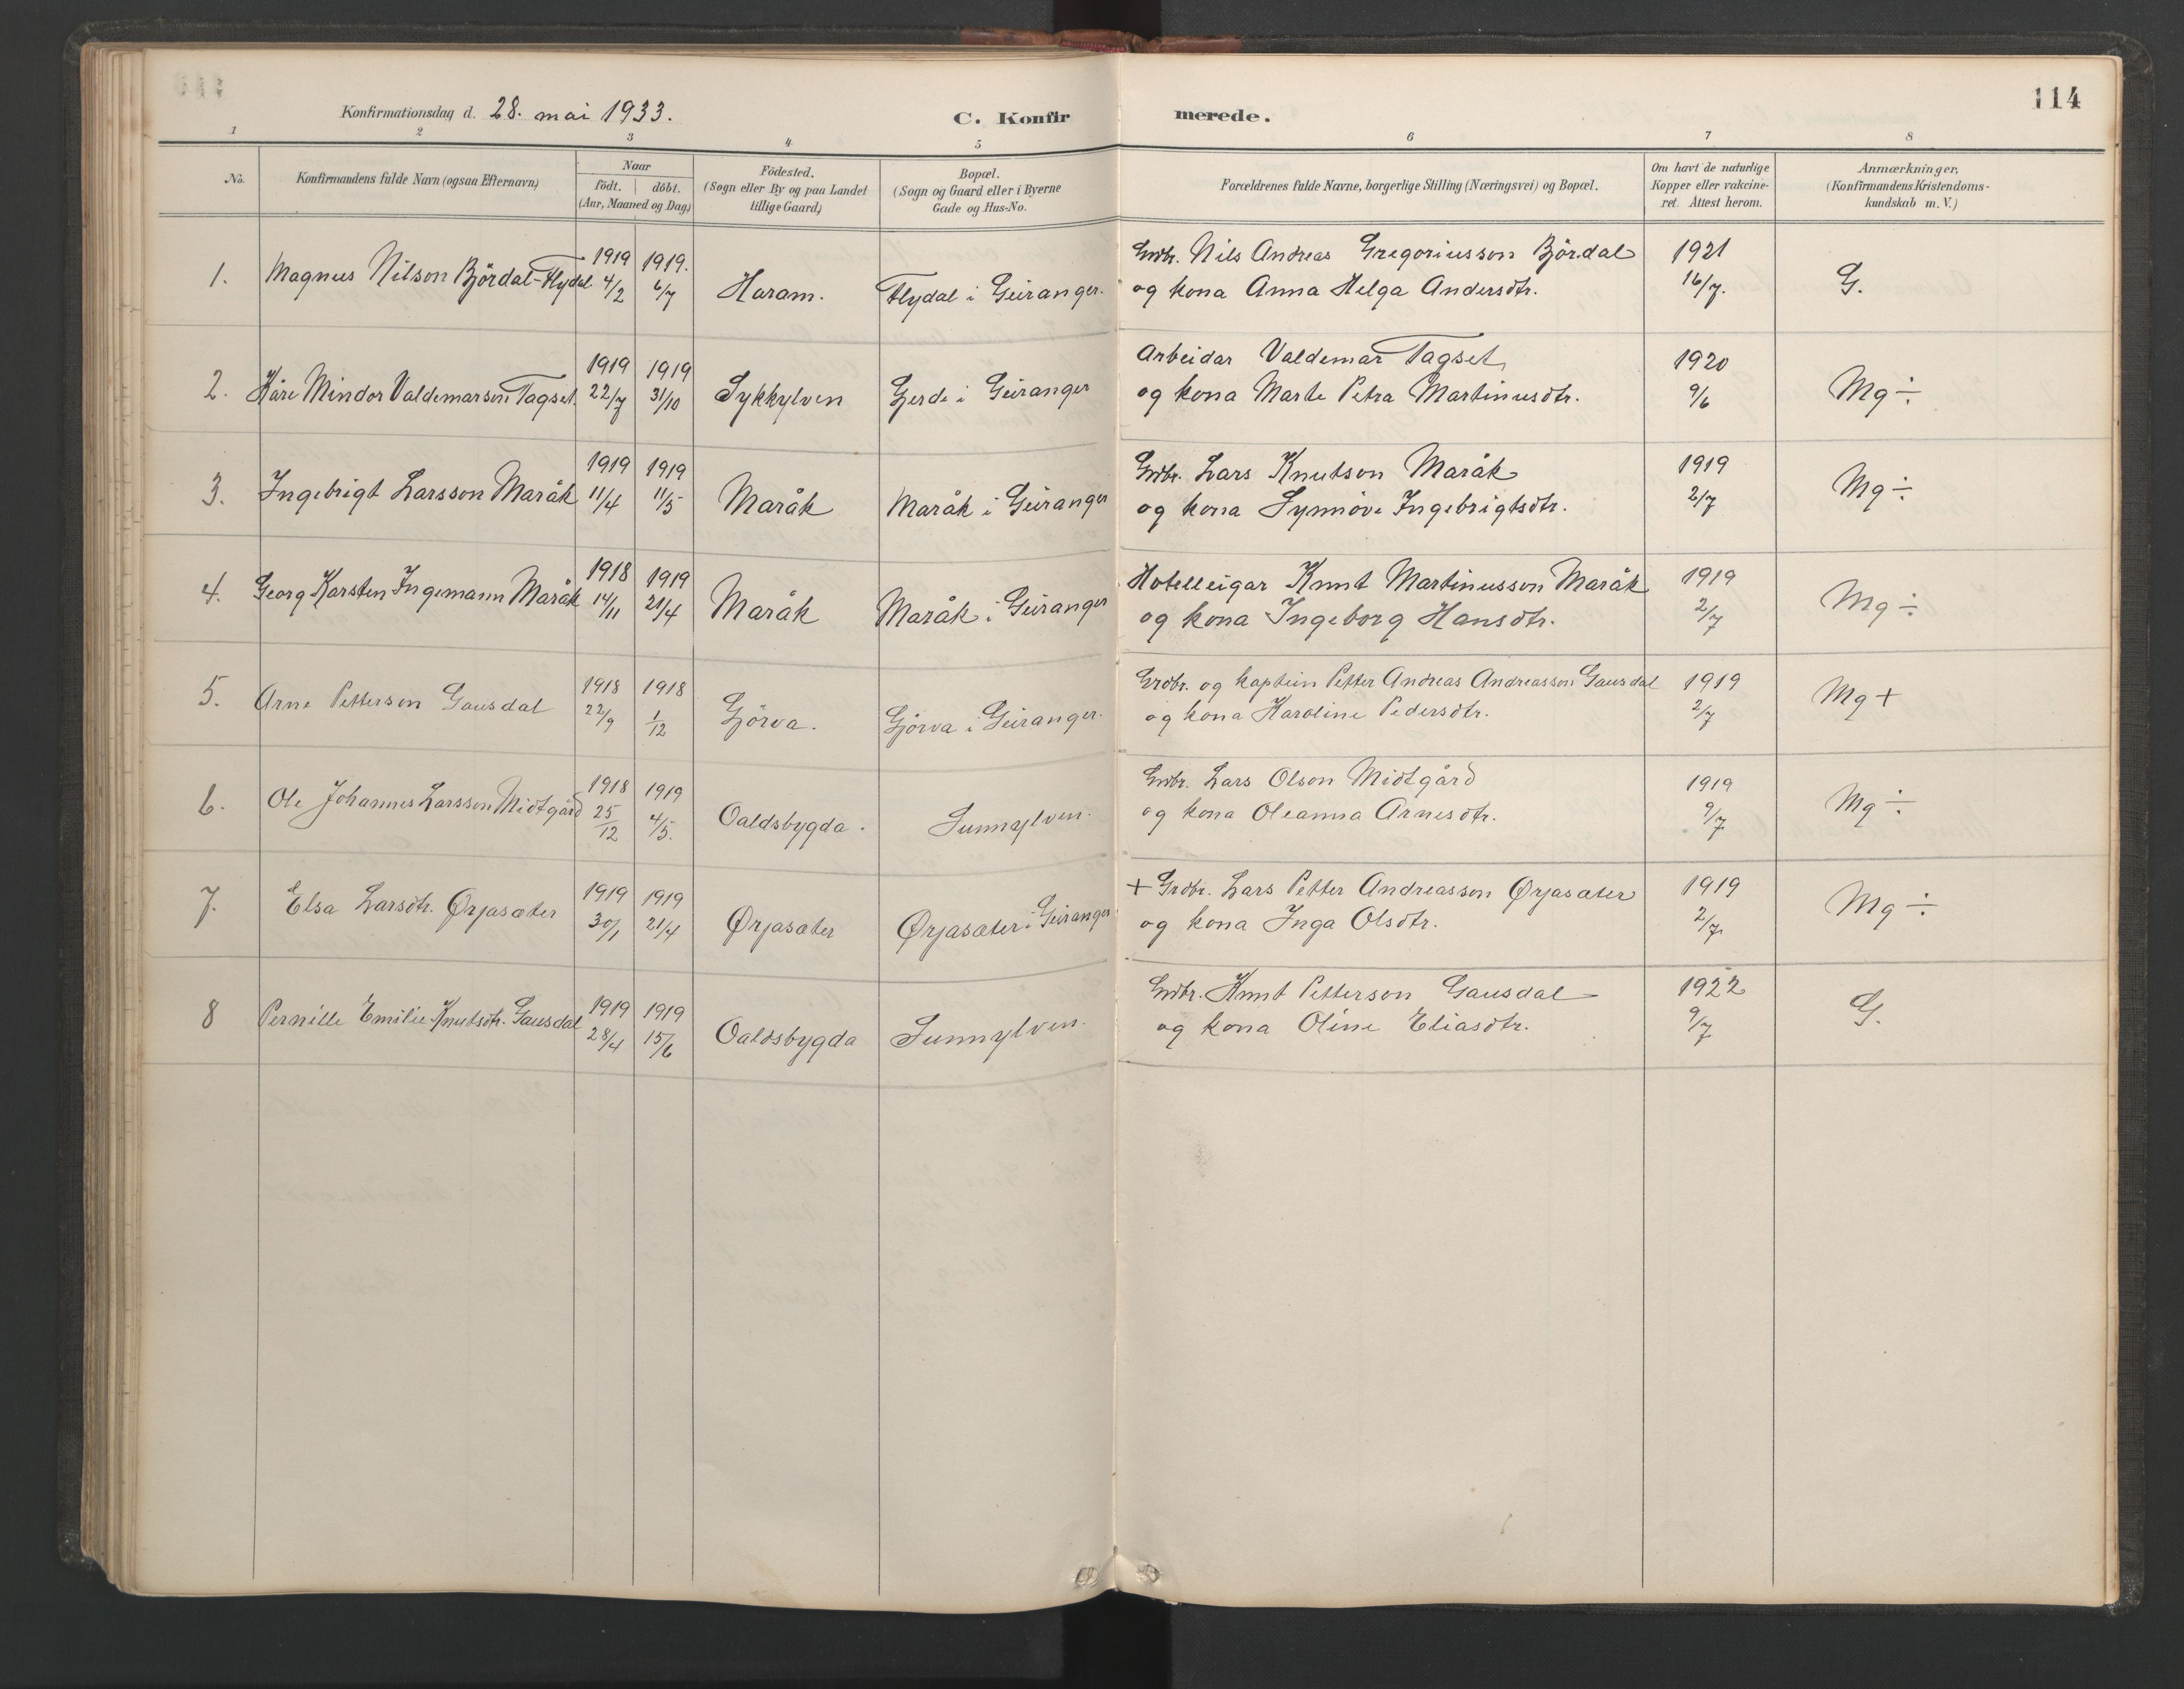 114
Konfirmationsdag d. 28. mai 1933.
C. Konfirmerede.
1 2 3 4 5 6 7 8
No.
Konfirmandens fulde Navn (ogsaa Efternavn)
Naar
födt. | döbt.
(Aar, Maaned og Dag)
Födested.
(Sogn eller By og paa Landet
tillige Gaard)
Bopæl.
(Sogn og Gaard eller i Byerne
Gade og Hus-No.
Forældrenes fulde Navne, borgerlige Stilling (Næringsvei) og Bopæl.
Om havt de naturlige
Kopper eller vakcine-
ret. Attest herom.
Anmærkninger,
(Konfirmandens Kristendoms-
kundskab m. V.)
1. Magnus Nilson Björdal-Flydal 1919 4/2 1919. 6/7 Haram. Flydal i Geiranger.
Grdbr. Nils Andreas Gregoriusson Björdal
og kona Anna Helga Andersdtr.
1921 16/7. G.
2. Kåre Mindor Valdemarson Tagset. 1919 22/7 1919 31/10 Sykkylven Gjerde i Geiranger
Arbeidar Valdemar Tagset
og kona Marte Petra Martinusdtr.
1920 9/6 Mg ÷
3. Ingebrigt Larsson Maråk 1919 11/4 1919 11/5 Maråk Maråk i Geiranger
Grdbr. Lars Knutson Maråk
og kona Synnöve Ingebrigtsdtr.
1919 2/7 Mg ÷
4. Georg Karsten Ingemann Maråk 1918 14/11 1919 21/4 Maråk Maråk i Geiranger
Hotelleigar Knut Martinusson Maråk
og kona Ingeborg Hansdtr.
1919 2/7 Mg ÷
5. Arne Petterson Gausdal 1918 22/9 1918 1/12 Gjörva. Gjörva i Geiranger.
Grdbr. og kaptein Petter Andreas Andreasson Gausdal
og kona Karoline Pedersdtr.
1919 2/7 Mg +
6. Ole Johannes Larsson Midtgård 1918 25/12 1919 4/5. Oaldsbygda. Sunnylven.
Grdbr. Lars Olson Midtgård
og kona Oleanna Arnesdtr.
1919 9/7 Mg ÷
7. Elsa Larsdtr. Ørjasæter 1919 30/1 1919 21/4 Ørjasæter Ørjasæter i Geiranger
+ Grdbr. Lars Petter Andreasson Ørjasæter
og kona Inga Olsdtr.
1919 2/7. Mg ÷
8 Pernille Emilie Knutsdtr. Gausdal 1919 28/4 1919 15/6 Oaldsbygda Sunnylven.
Grdbr. Knut Petterson Gausdal
og kona Oline Eliasdtr.
1922 9/7 G.